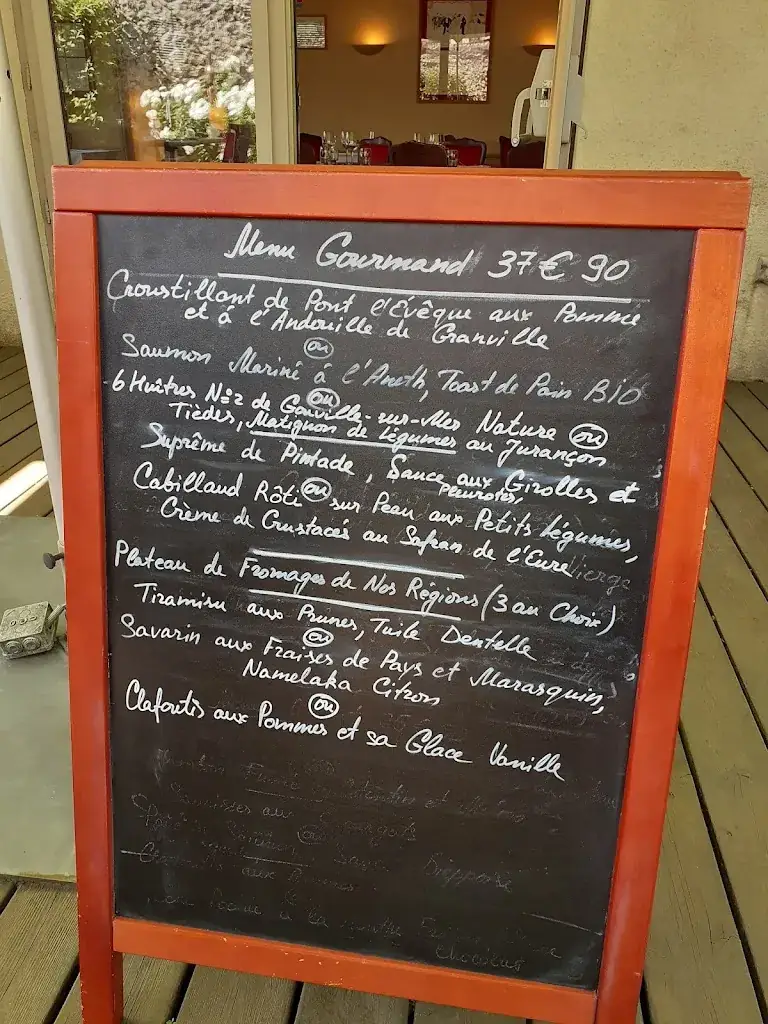 Menu Gourmand 37€90
Croustillant de Pont l'Évêque aux Pomme
et á l'Andouille de Granville
ou
Saumon Mariné á l'Aneth, Toast de Pain BIO
ou
6 Huîtres N°2 de Gouville-sur-Mer Nature ou
Tièdes, Matignon de Légumes au Jurançon
Suprême de Pintade, Sauce aux Girolles et
Pleurotes,
ou
Cabillaud Rôti sur Peau aux Petits Légumes,
Crème de Crustacés au Safran de l'Eure
Plateau de Fromages de Nos Régions (3 au Choix)
Tiramisu aux Prunes, Tuile Dentelle
ou
Savarin aux Fraises de Pays et Marasquin,
Namelaka Citron
ou
Clafoutis aux Pommes et sa Glace Vanille